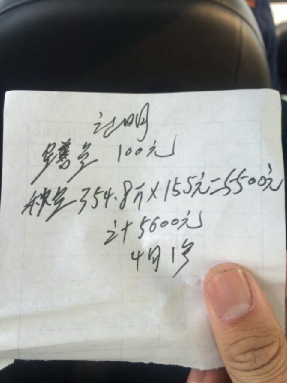 证明
100元
354.8斤×155元=5500元
计5600元
4月1号